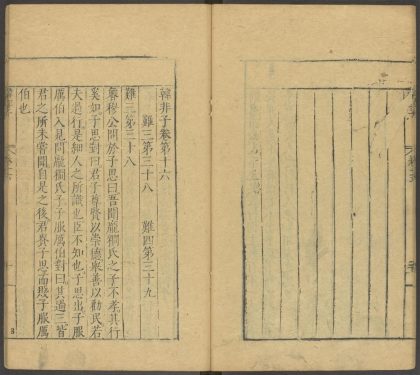 韓非子卷第十六
難三第三十八 難四第三十九
難三第三十八
魯穆公問於子思曰吾聞龐𥩳氏之子不孝其行
奚如子思對曰君子尊賢以崇德舉善以勸民若
夫過行是細人之所識也臣不知也子思出子服
厲伯入見問龐𥩳氏子子服厲伯對曰其過三皆
君之所未嘗聞自是之後君貴子思而賤子服厲
伯也